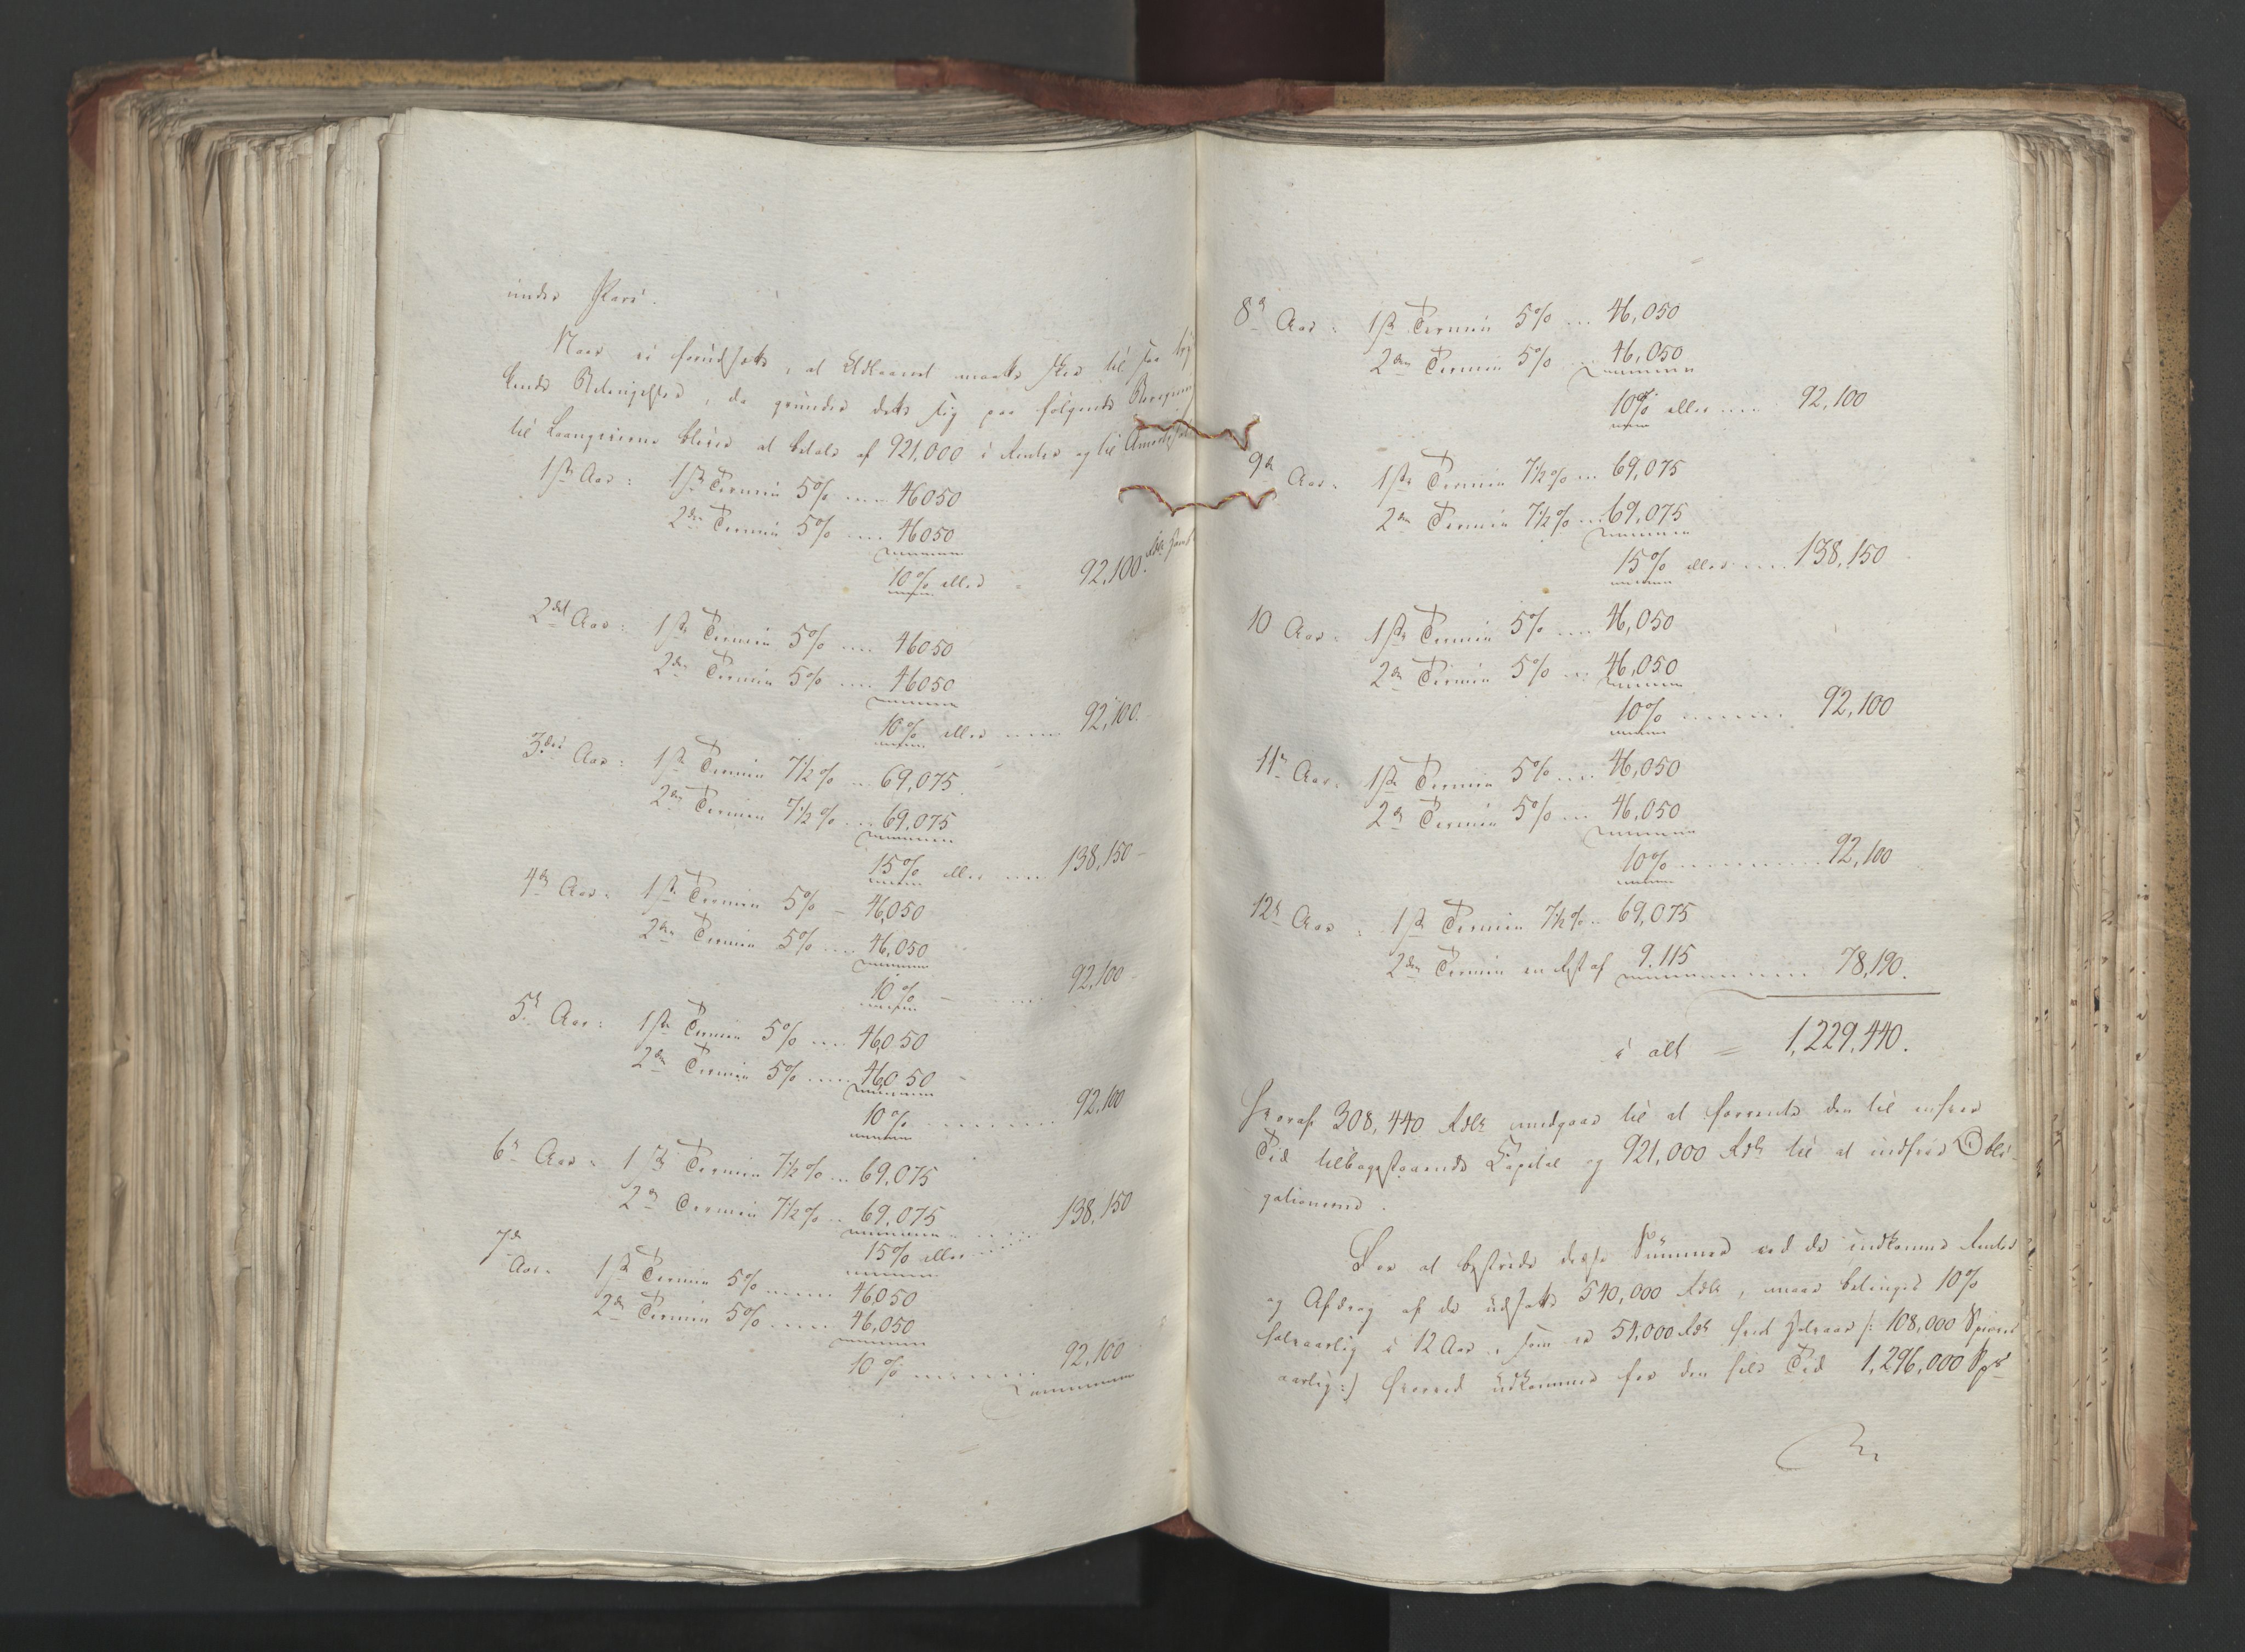 under Pari.
Naar vi forudsætte, at Udlaanet maatte skee til saa try
kende Betingelser, da grunder dette sig paa følgende Beregning
til Laangiverne bliver at betale af 921,000 i Renter og til Amortisat
1ste Aar: 1ste Termin 5% .... 46050
2den Termin 5% .... 46050
10% eller = 92,100. Rdlr
2det Aar: 1ste Termin 5% .... 46050
2den Termin 5% .... 46050
10% eller ..... 92,100.
3die Aar: 1ste Termin 7½% ... 69,075.
2den Termin 7½% ... 69,075
15% eller .... 138,150 -
4de Aar: 1ste Termin 5% - 46,050
2den Termin 5% .... 46,050
10% - .... 92,100 -
5te Aar: 1ste Termin 5% .... 46,050
2den Termin 5% ..... 46,050 -
10% .......... 92,100
6te Aar: 1ste Termin 7½% ... 69,075
2den Termin 7½% ... 69,075
15% eller ..... 138,150
7de Aar: 1ste Termin 5% ...... 46,050
2den Termin 5% ..... 46,050
10% ......... 92,100
8de Aar: 1ste Termin 5% ... 46,050
2den Termin 5% ... 46,050
10% eller .... 92,100
9de Aar: 1ste Termin 7½% ... 69,075
2den Termin 7½% ... 69,075
15% eller .... 138,150
10 Aar: 1ste Termin 5% .... 46,050
2den Termin 5% ... 46,050
10% ....... 92,100
11te Aar: 1ste Termin 5% .... 46,050
2den Termin 5% ... 46,050
10% .......... 92,100
12te Aar: 1ste Termin 7½% .. 69,075
2den Termin en Rest af 9.115 ....... 78,190.
i alt = 1,229,440.
Hvoraf 308,440 Rdlr medgaar til at forrente den til enhver
Tid tilbagestaaende Capital og 921,000 Rdlr til at indfrie Obli-
gationerne.
For at bestride disse Summer ved de indkomne Renter
og Afdrag af de udsatte 540,000 Rdlr, maae betinges 10%
halvaarlig i 12 Aar, som er 54,000 Rdlr hvert Halvaar /: 108,000 Species
aarlig:/ hvorved udkommer for den hele Tid 1,296,000 Sps